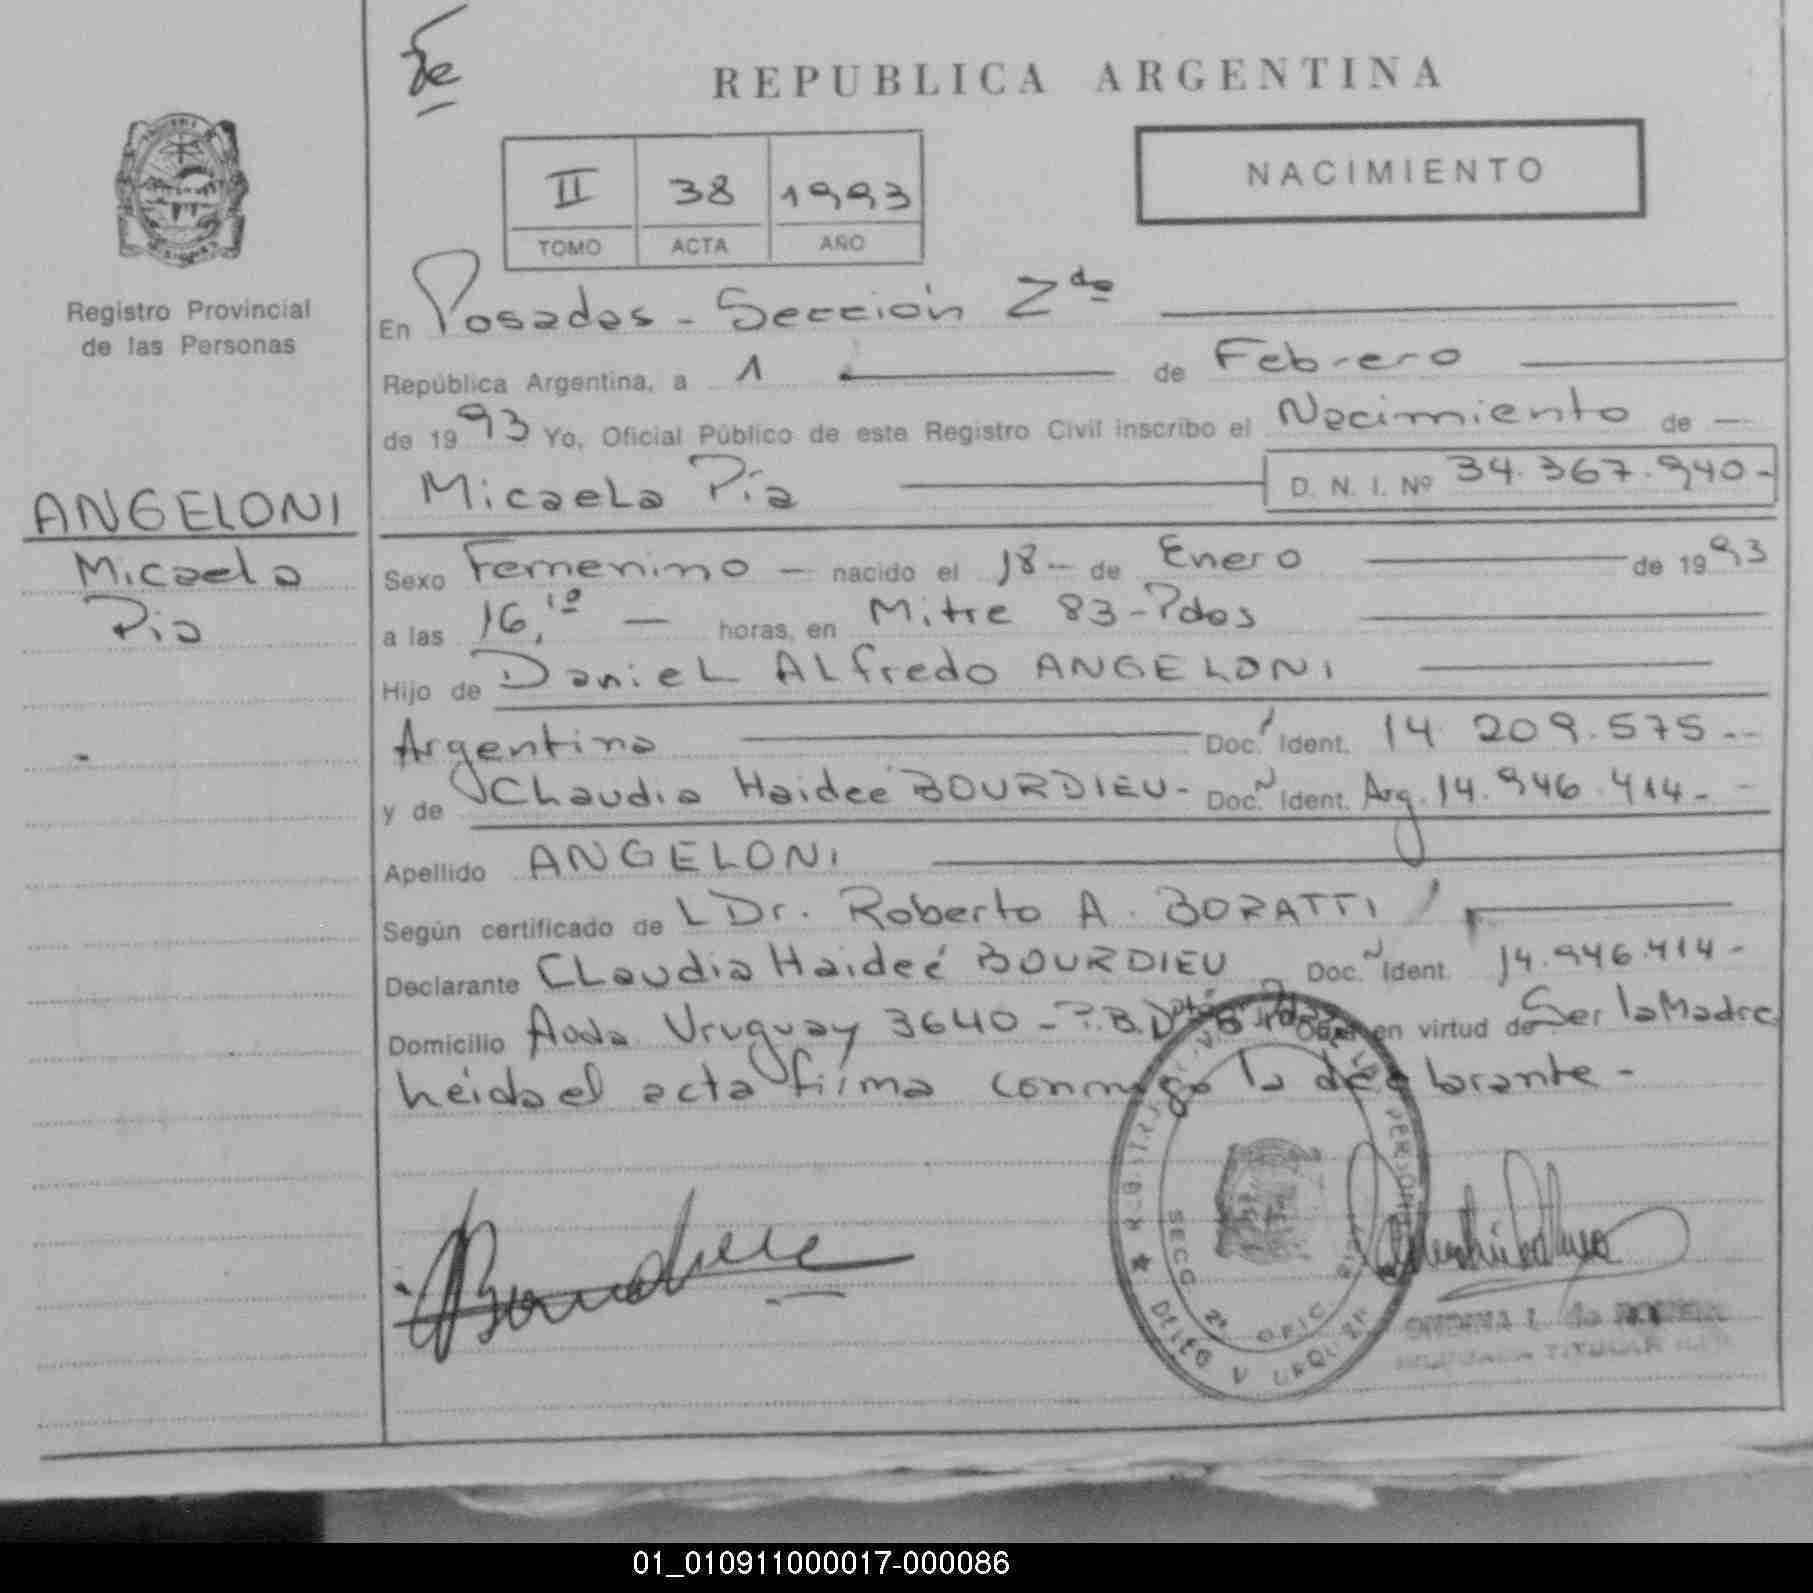 REPUBLICA ARGENTINA
II 38 1993
TOMO ACTA AÑO
NACIMIENTO
Registro Provincial
de las Personas
ANGELONI
Micaela
Pia
En Posadas - Sección 2da
República Argentina, a 1 de Febrero
de 1993 Yo, Oficial Público de este Registro Civil inscribo el Nacimiento de -
Micaela Pía D. N. I. Nº 34.367.940-
Sexo Femenino - nacido el 18 - de Enero de 1993
a las 16,10 - horas, en Mitre 83 - Pdas
Hijo de Daniel Alfredo ANGELONI
Argentina Doc. Ident. 14 209.575--
y de Claudia Haideé BOURDIEU - Doc. Ident. Arg. 14.946.414--
Apellido ANGELONI
Según certificado de L Dr. Roberto A. BORATTI
Declarante Claudia Haideé BOURDIEU Doc. Ident. 14.946.414-
Domicilio Avda Uruguay 3640 - P.B. en virtud de Ser la Madre
Leída el acta firma conmigo la declarante -
SECC 2ª OFIC
URQUIZA
TITULAR
01_010911000017-000086